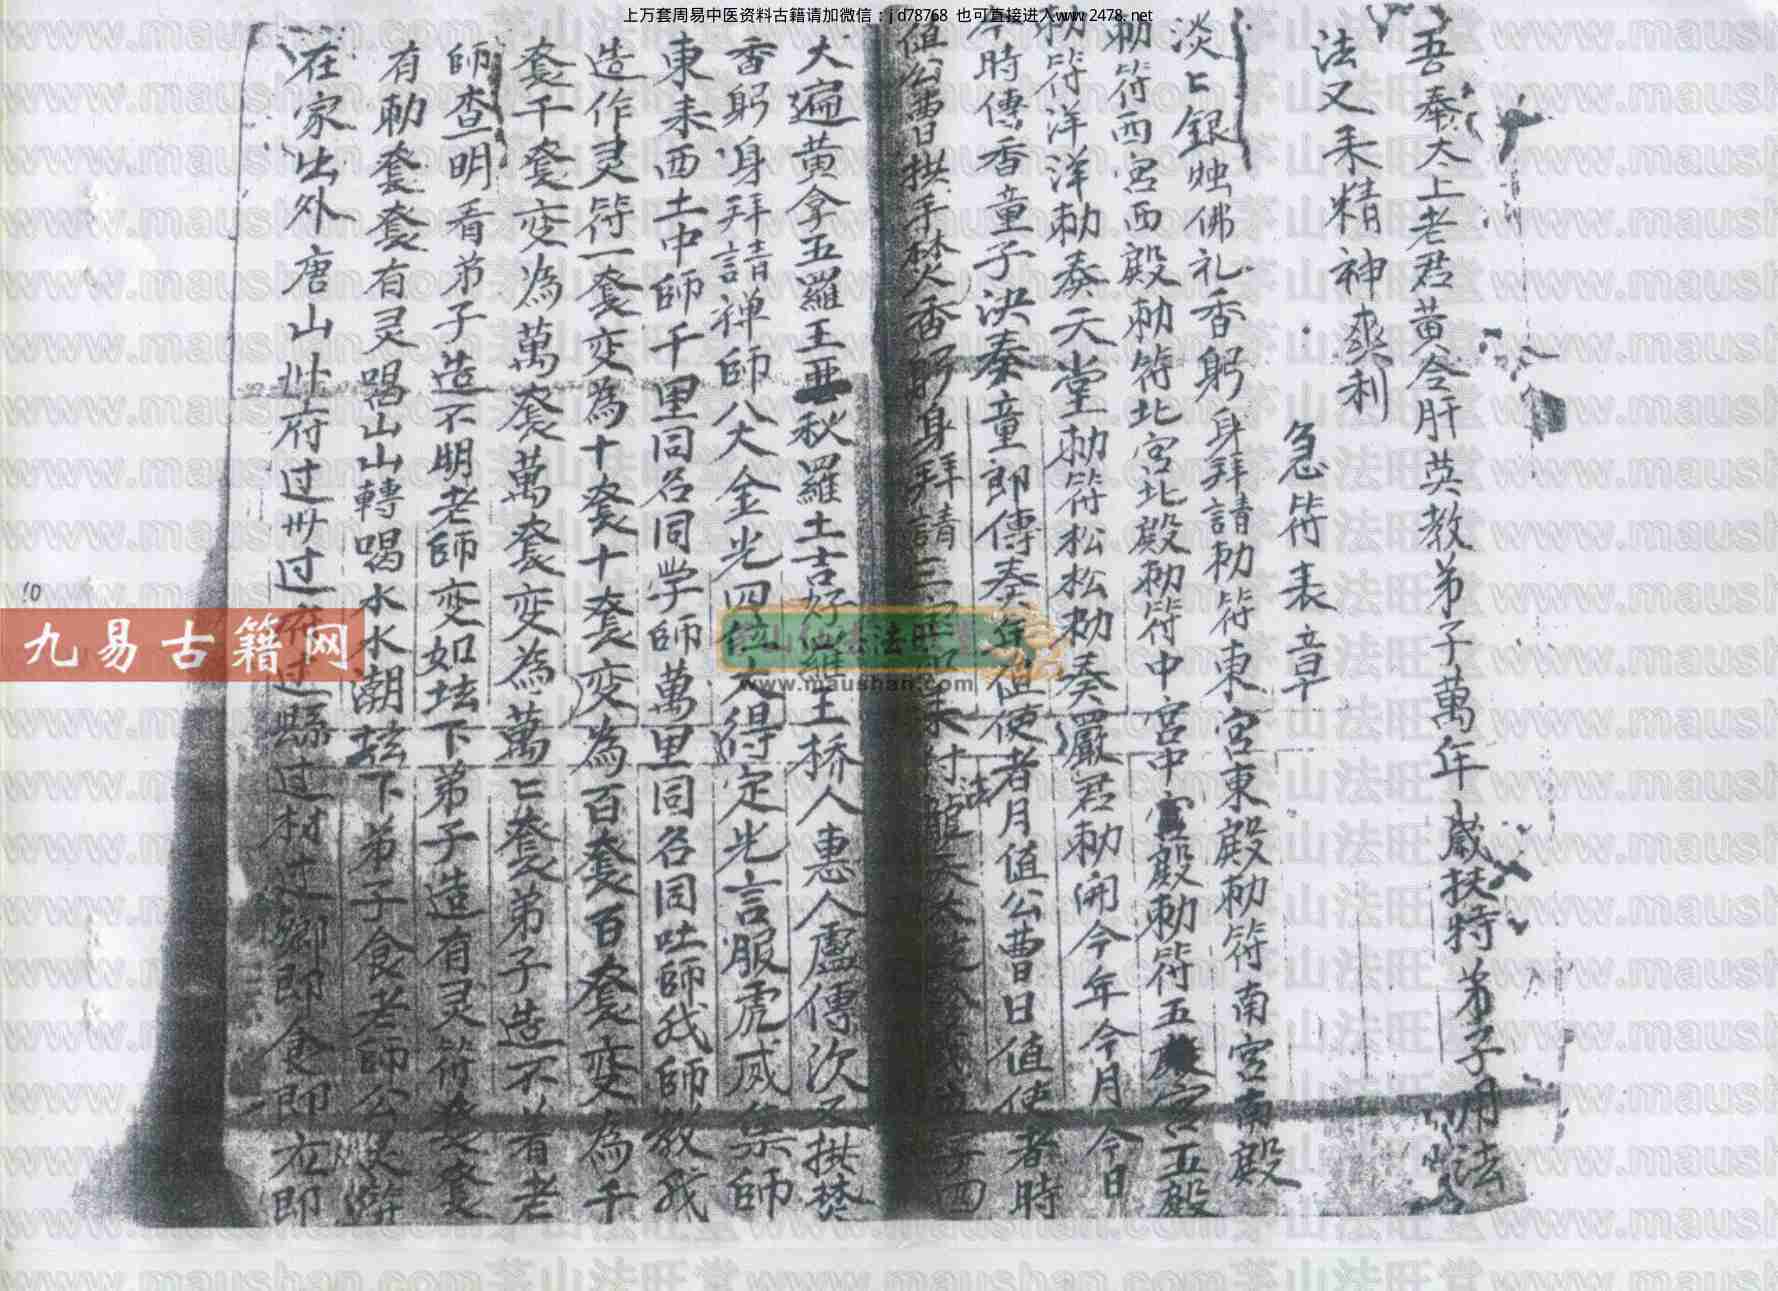 上万套周易中医资料古籍请加微信：jd78768 也可直接进入www.2478.net
吾奉太上老君黄令肝英教弟子萬年歲扶持弟子用法
法又来精神爽利
急符表章
淡匕銀烛佛礼香躬身拜請勅符東宮東殿勅符南宮南殿
勅符西宮西殿勅符北宮北殿勅符中宮中殿勅符五宮五殿
勅符洋洋勅奏天堂勅符松松勅奏嚴君勅開今年今月今日
今時傳香童子決奏童郎傳奏年值使者月值公曹日值使者時
值公曹拱手焚香躬身拜請三
大遍黄拿五羅王秋羅土吉好羅王桥人惠人盧傳次又拱焚
香躬身拜請禅師八大金光四得定光言服虎威集師
東来西土中師千里同名同学師萬里同名同吐師我師教我
造作灵符一套变為十套十套变為百套百套变為千
套千套变為萬套萬套变為萬匕套弟子造不着老
師查明看弟子造不明老師变如坛下弟子造有灵符套套
有勅套套有灵喝山山轉喝水水潮坛下弟子食老師公
在家出外唐山州府过州过府过縣过村过鄉即食即左即
九易古籍网
www.maushan.com
10